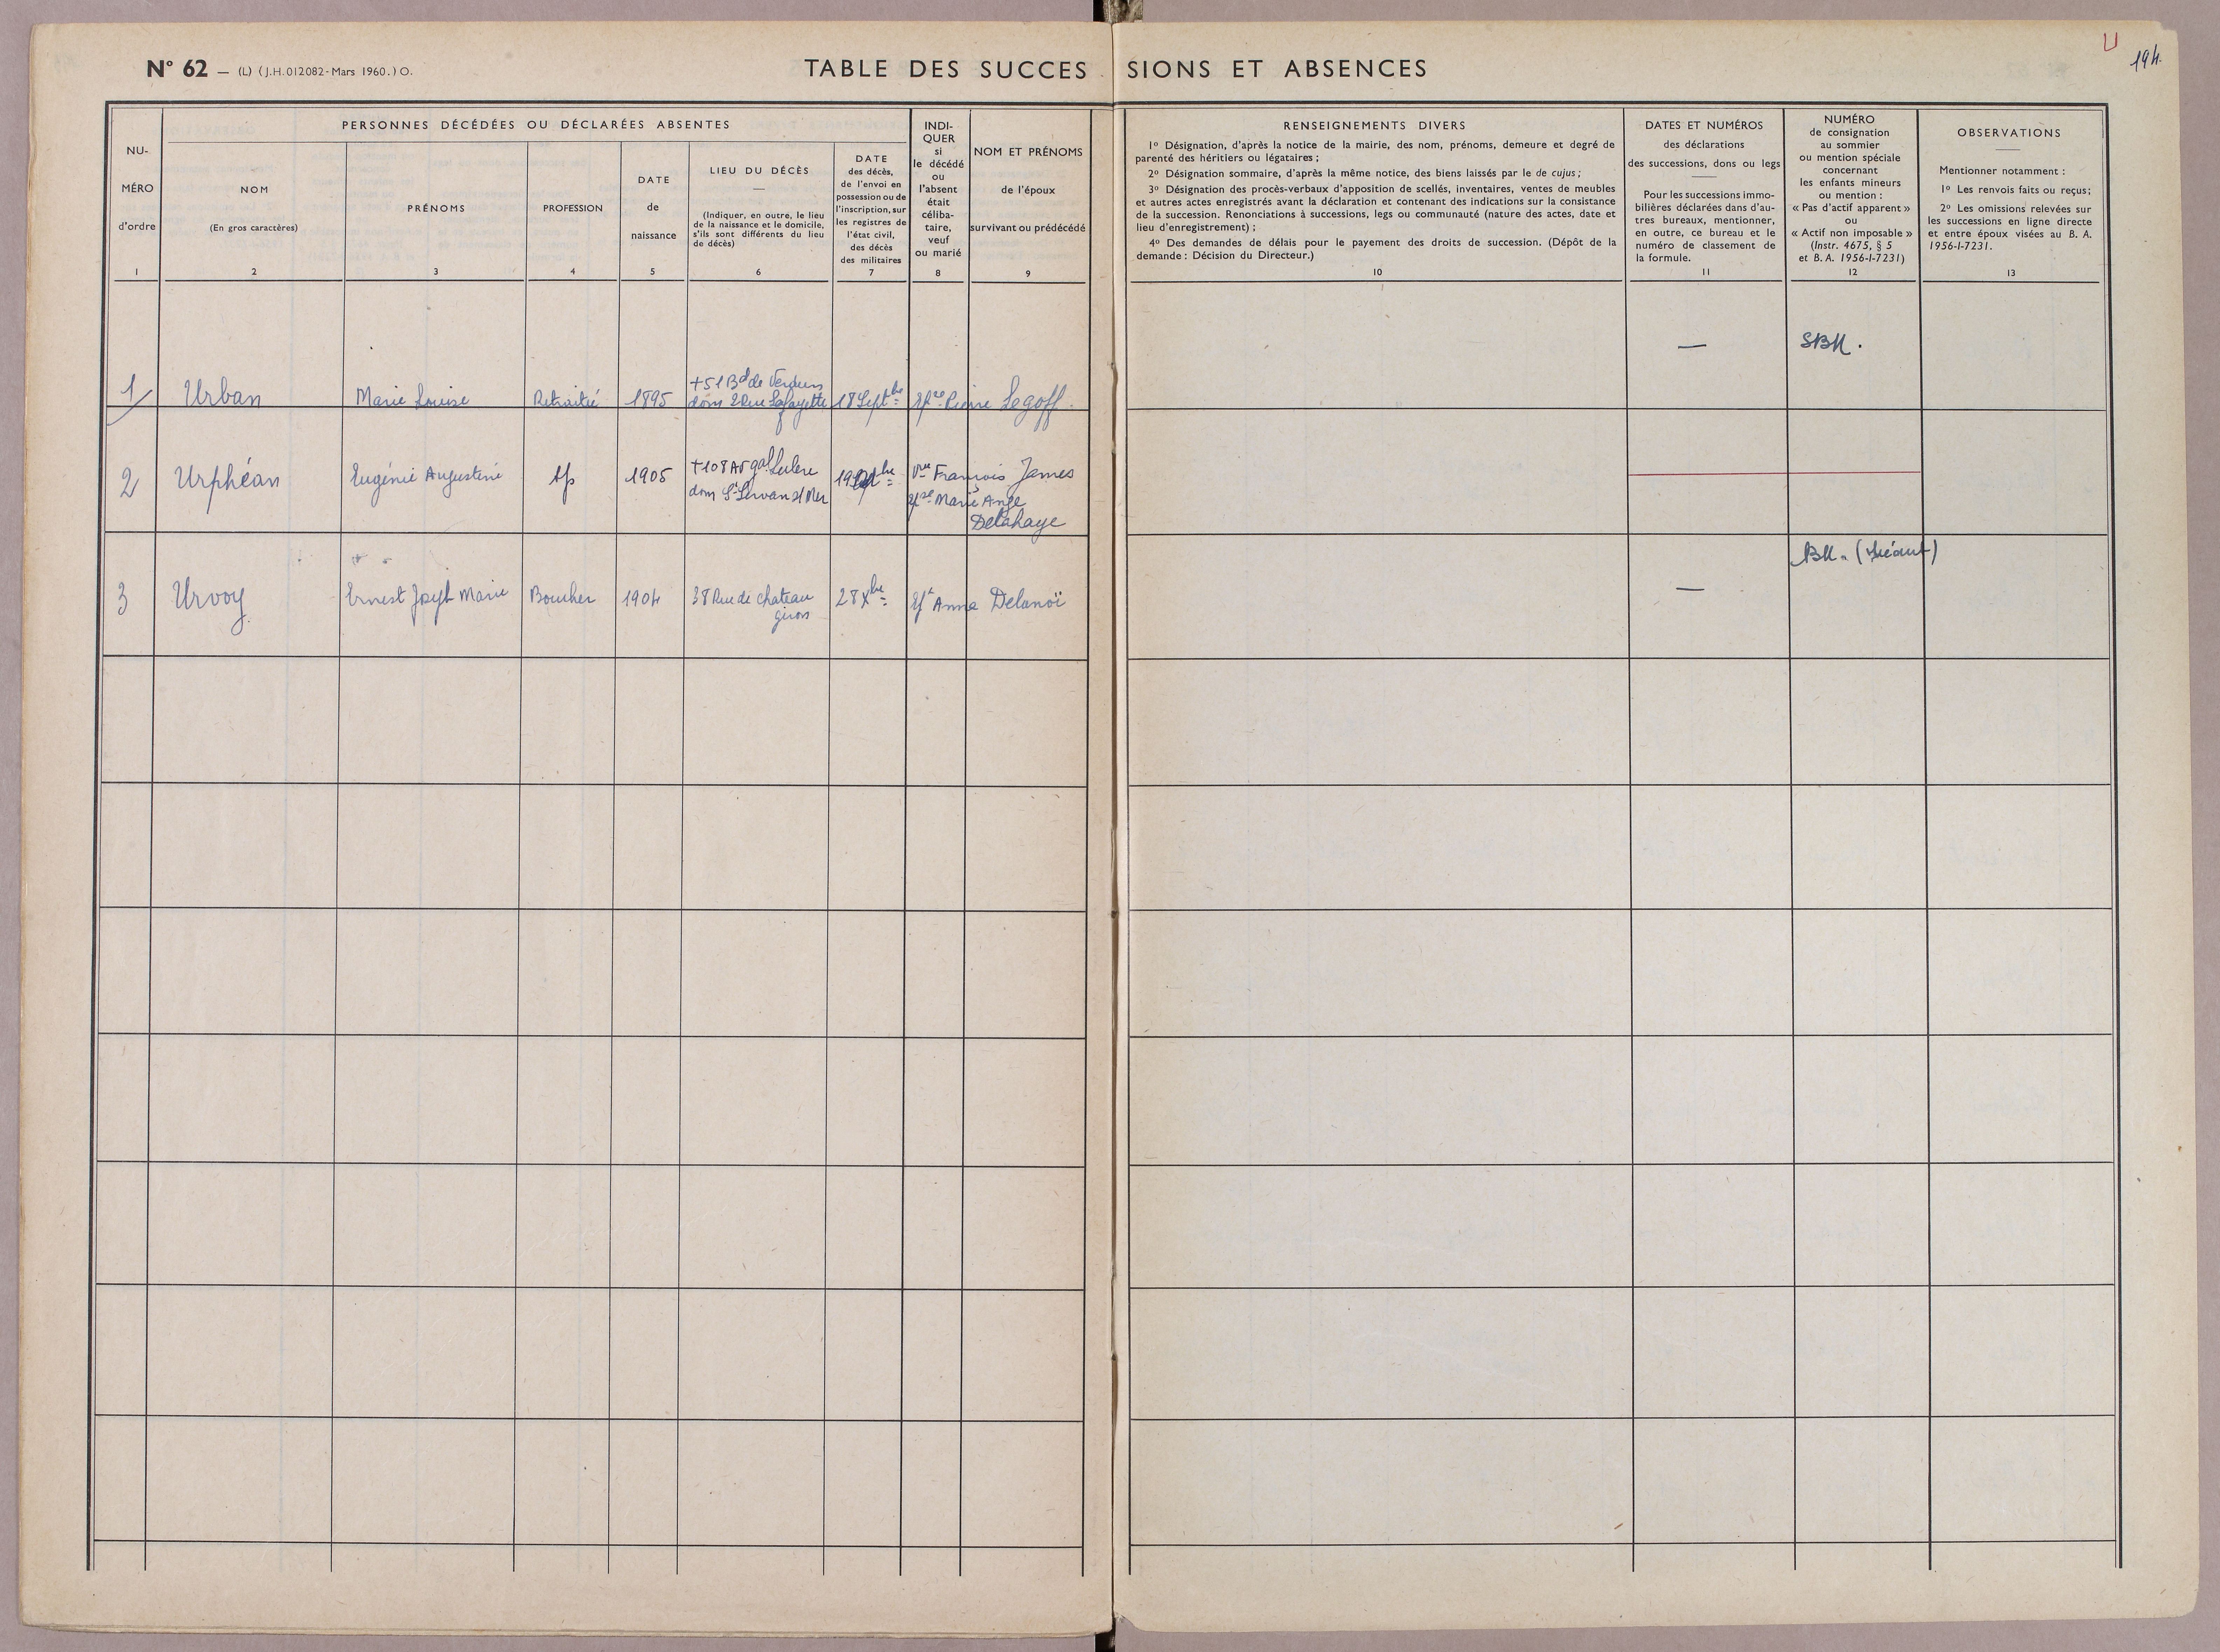 U
194.
N° 62 — (L) (J.H.012082-Mars 1960.) O.
TABLE DES SUCCESSIONS ET ABSENCES
NU-
MÉRO
d'ordre
1
PERSONNES DÉCÉDÉES OU DÉCLARÉES ABSENTES
NOM
(En gros caractères)
2
PRÉNOMS
3
PROFESSION
4
DATE
de
naissance
5
LIEU DU DÉCÈS
—
(Indiquer, en outre, le lieu
de la naissance et le domicile,
s'ils sont différents du lieu
de décès)
6
DATE
des décès,
de l'envoi en
possession ou de
l'inscription, sur
les registres de
l'état civil,
des décès
des militaires
7
INDI-
QUER
si
le décédé
ou
l'absent
était
céliba-
taire,
veuf
ou marié
8
NOM ET PRÉNOMS
de l'époux
survivant ou prédécédé
9
RENSEIGNEMENTS DIVERS
1° Désignation, d'après la notice de la mairie, des nom, prénoms, demeure et degré de
parenté des héritiers ou légataires ;
2° Désignation sommaire, d'après la même notice, des biens laissés par le de cujus ;
3° Désignation des procès-verbaux d'apposition de scellés, inventaires, ventes de meubles
et autres actes enregistrés avant la déclaration et contenant des indications sur la consistance
de la succession. Renonciations à successions, legs ou communauté (nature des actes, date et
lieu d'enregistrement) ;
4° Des demandes de délais pour le payement des droits de succession. (Dépôt de la
demande : Décision du Directeur.)
10
DATES ET NUMÉROS
des déclarations
des successions, dons ou legs
Pour les successions immo-
bilières déclarées dans d'au-
tres bureaux, mentionner,
en outre, ce bureau et le
numéro de classement de
la formule.
11
NUMÉRO
de consignation
au sommier
ou mention spéciale
concernant
les enfants mineurs
ou mention :
« Pas d'actif apparent »
ou
« Actif non imposable »
(Instr. 4675, § 5
et B. A. 1956-I-7231)
12
OBSERVATIONS
Mentionner notamment :
1° Les renvois faits ou reçus ;
2° Les omissions relevées sur
les successions en ligne directe
et entre époux visées au B. A.
1956-I-7231.
13
1 Urban Marie Louise Retraitée 1895
+ 51 Bd de Verdun
dom 2 Rue Lafayette
18 Septbre Pierre Legoff.
— SBM.
2 Urphéan Eugénie Augustine sp 1905
+ 108 Av gal Leclerc
dom St Servan s/ Mer
Vve François James
Marie Ange
Delahaye
3 Urvoy Ernest Joseph Marie Boucher 1904
38 Rue de chateau
giron
28 Xbre Anna Delanoï
— BM. (